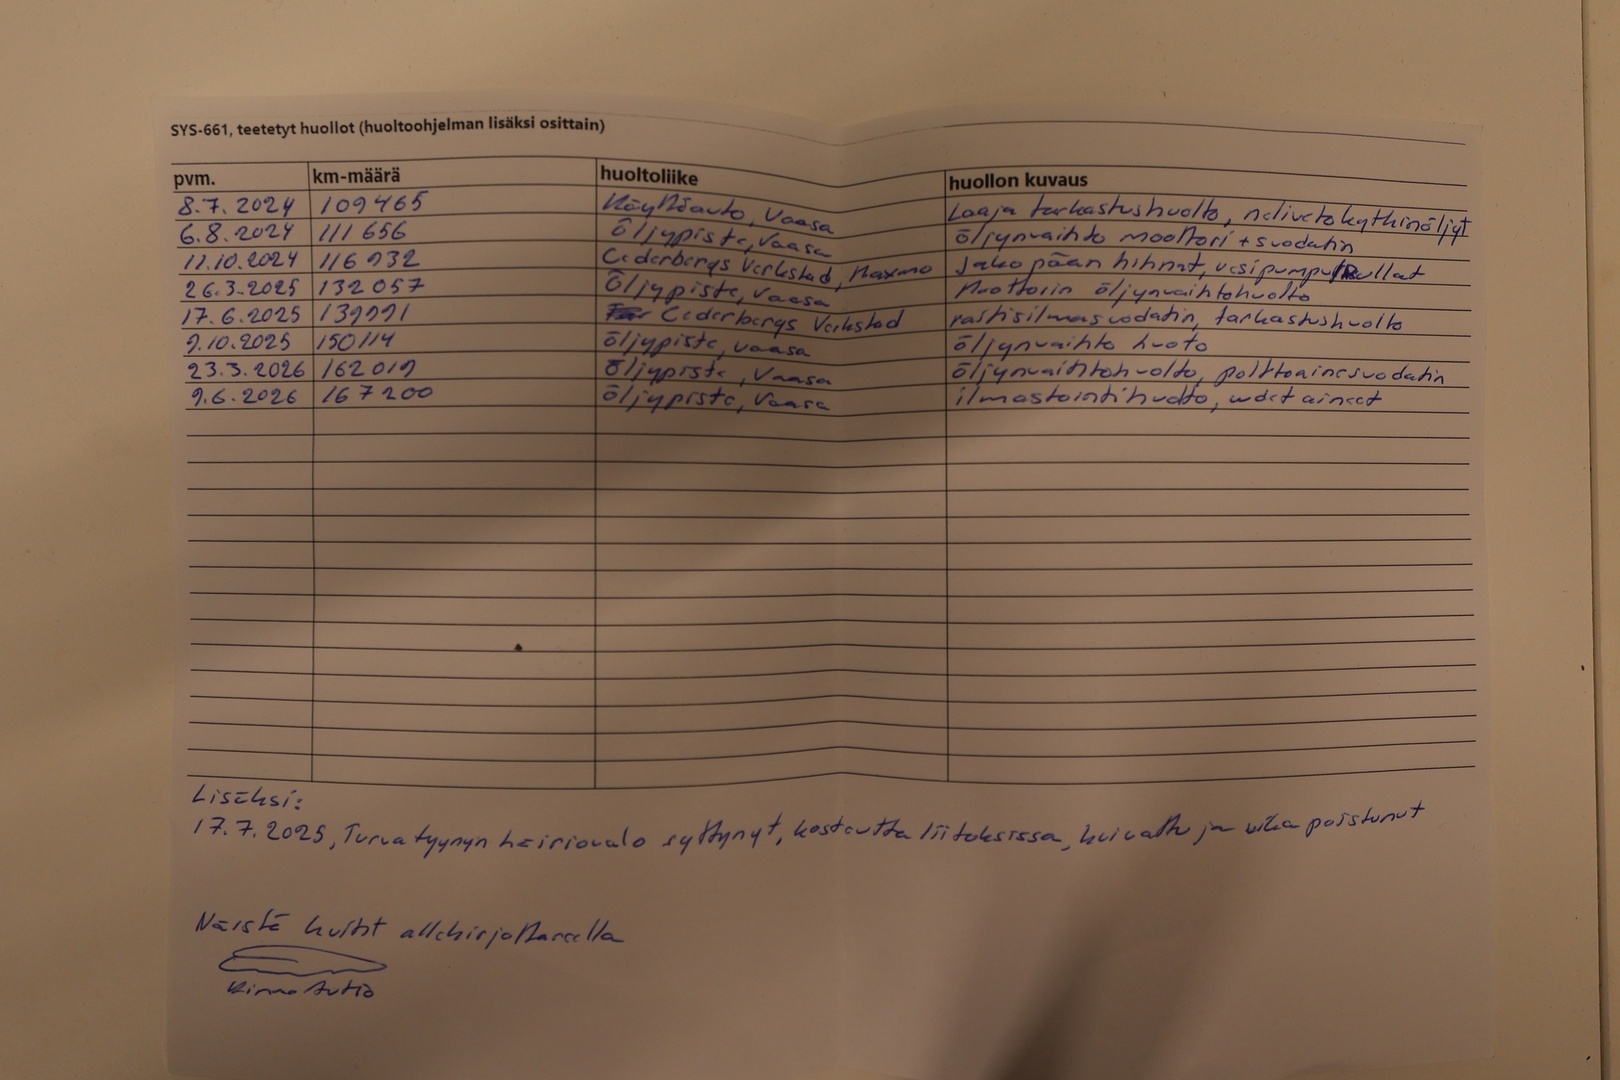 SYS-661, teetetyt huollot (huoltoohjelman lisäksi osittain)
pvm. km-määrä huoltoliike huollon kuvaus
8.7.2024 109465 Käyttöauto, Vaasa Laaja tarkastushuolto, nelivetokytkinöljyt
6.8.2024 111656 Öljypiste, Vaasa öljynvaihto moottori + suodatin
11.10.2024 116932 Cederbergs Verkstad, Maxmo Jakopään hihnat, vesipumpu, rullat
26.3.2025 132057 Öljypiste, Vaasa Moottorin öljynvaihtohuolto
17.6.2025 139991 Cederbergs Verkstad raitisilmasuodatin, tarkastushuolto
9.10.2025 150114 öljypiste, Vaasa öljynvaihto huoto
23.3.2026 162019 Öljypiste, Vaasa öljynvaihtohuolto, polttoainesuodatin
9.6.2026 167200 öljypiste, Vaasa ilmastointihuolto, uudet aineet
Lisäksi:
17.7.2025, Turvatyynyn häiriövalo syttynyt, kosteutta liitoksissa, kuivattu ja vika poistunut
Näistä kuitit allekirjottaneella